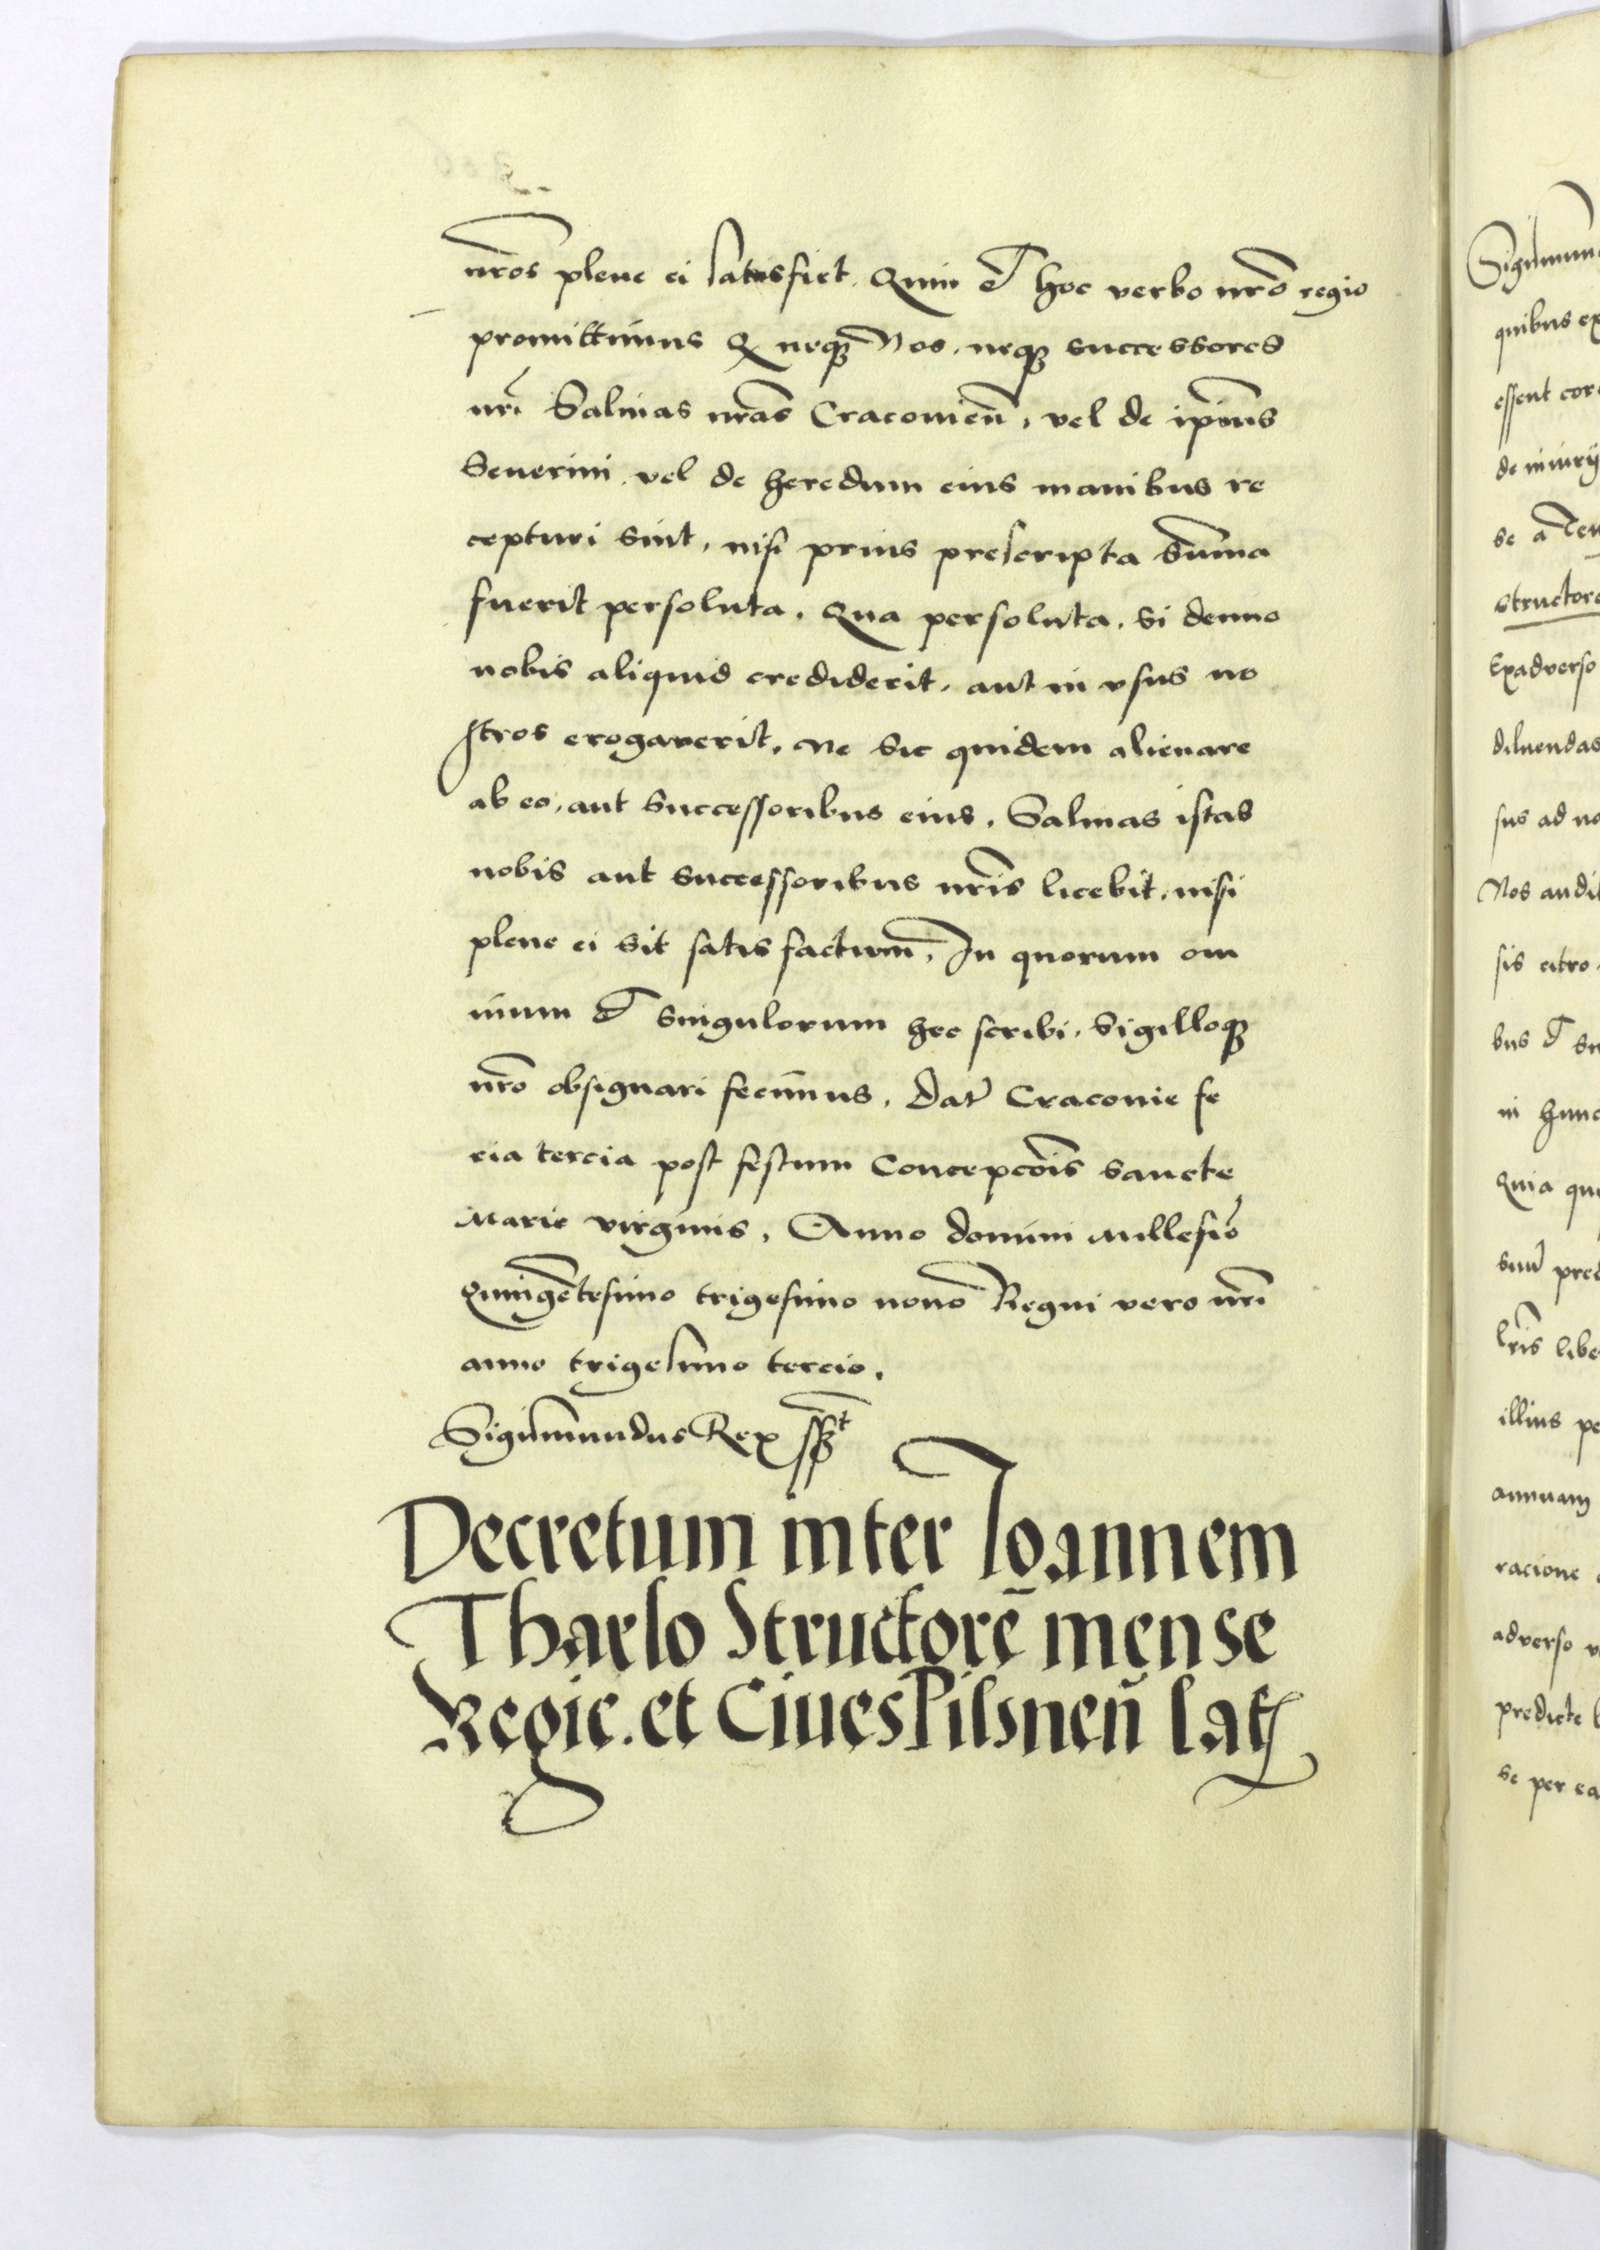 nr̃os plene ei satisfiet. Quin et hoc verbo nr̃o regio
promittimus q neqʒ Nos. neqʒ successores
nr̃i Salinas nr̃as Cracouien̄, vel de ip̄ius
Seuerini. vel de heredum eius manibus re
cepturi sint, nisi prius prescripta Sum̄a
fuerit persoluta. Qua persoluta. si denuo
nobis aliquid crediderit. aut in vsus no
stros erogaverit. Ne Sic quidem alienare
ab eo, aut Successoribus eius. Salinas istas
nobis aut Successoribus nr̃is licebit. nisi
plene ei sit satis factum. In quorum om
nium et singulorum hec scribi. Sigilloqʒ
nr̃o obsignari fecimus. Dat̃ Cracouie fe
ria tercia post festum Concepcõis Sancte
Marie virginis. Anno domini Millesio̅
Quinge̅tesimo trigesimo nono Regni vero nr̃i
anno trigesimo tercio.
Sigismundus Rex sspt
Decretum inter Ioannem
Tharlo Structorē mense
Regie. et Ciues Pilsnen̄ lat
Sigismun
quibus ex
essent cor
de iniurij
se a
structore
Exadverso
diluendas
sus ad no
Nos audit
sis citro
bus et su
in hunc
Quia qu
pred
lr̃is libe
illius pe
annuam
racione
adverso v
predicte
se per ea